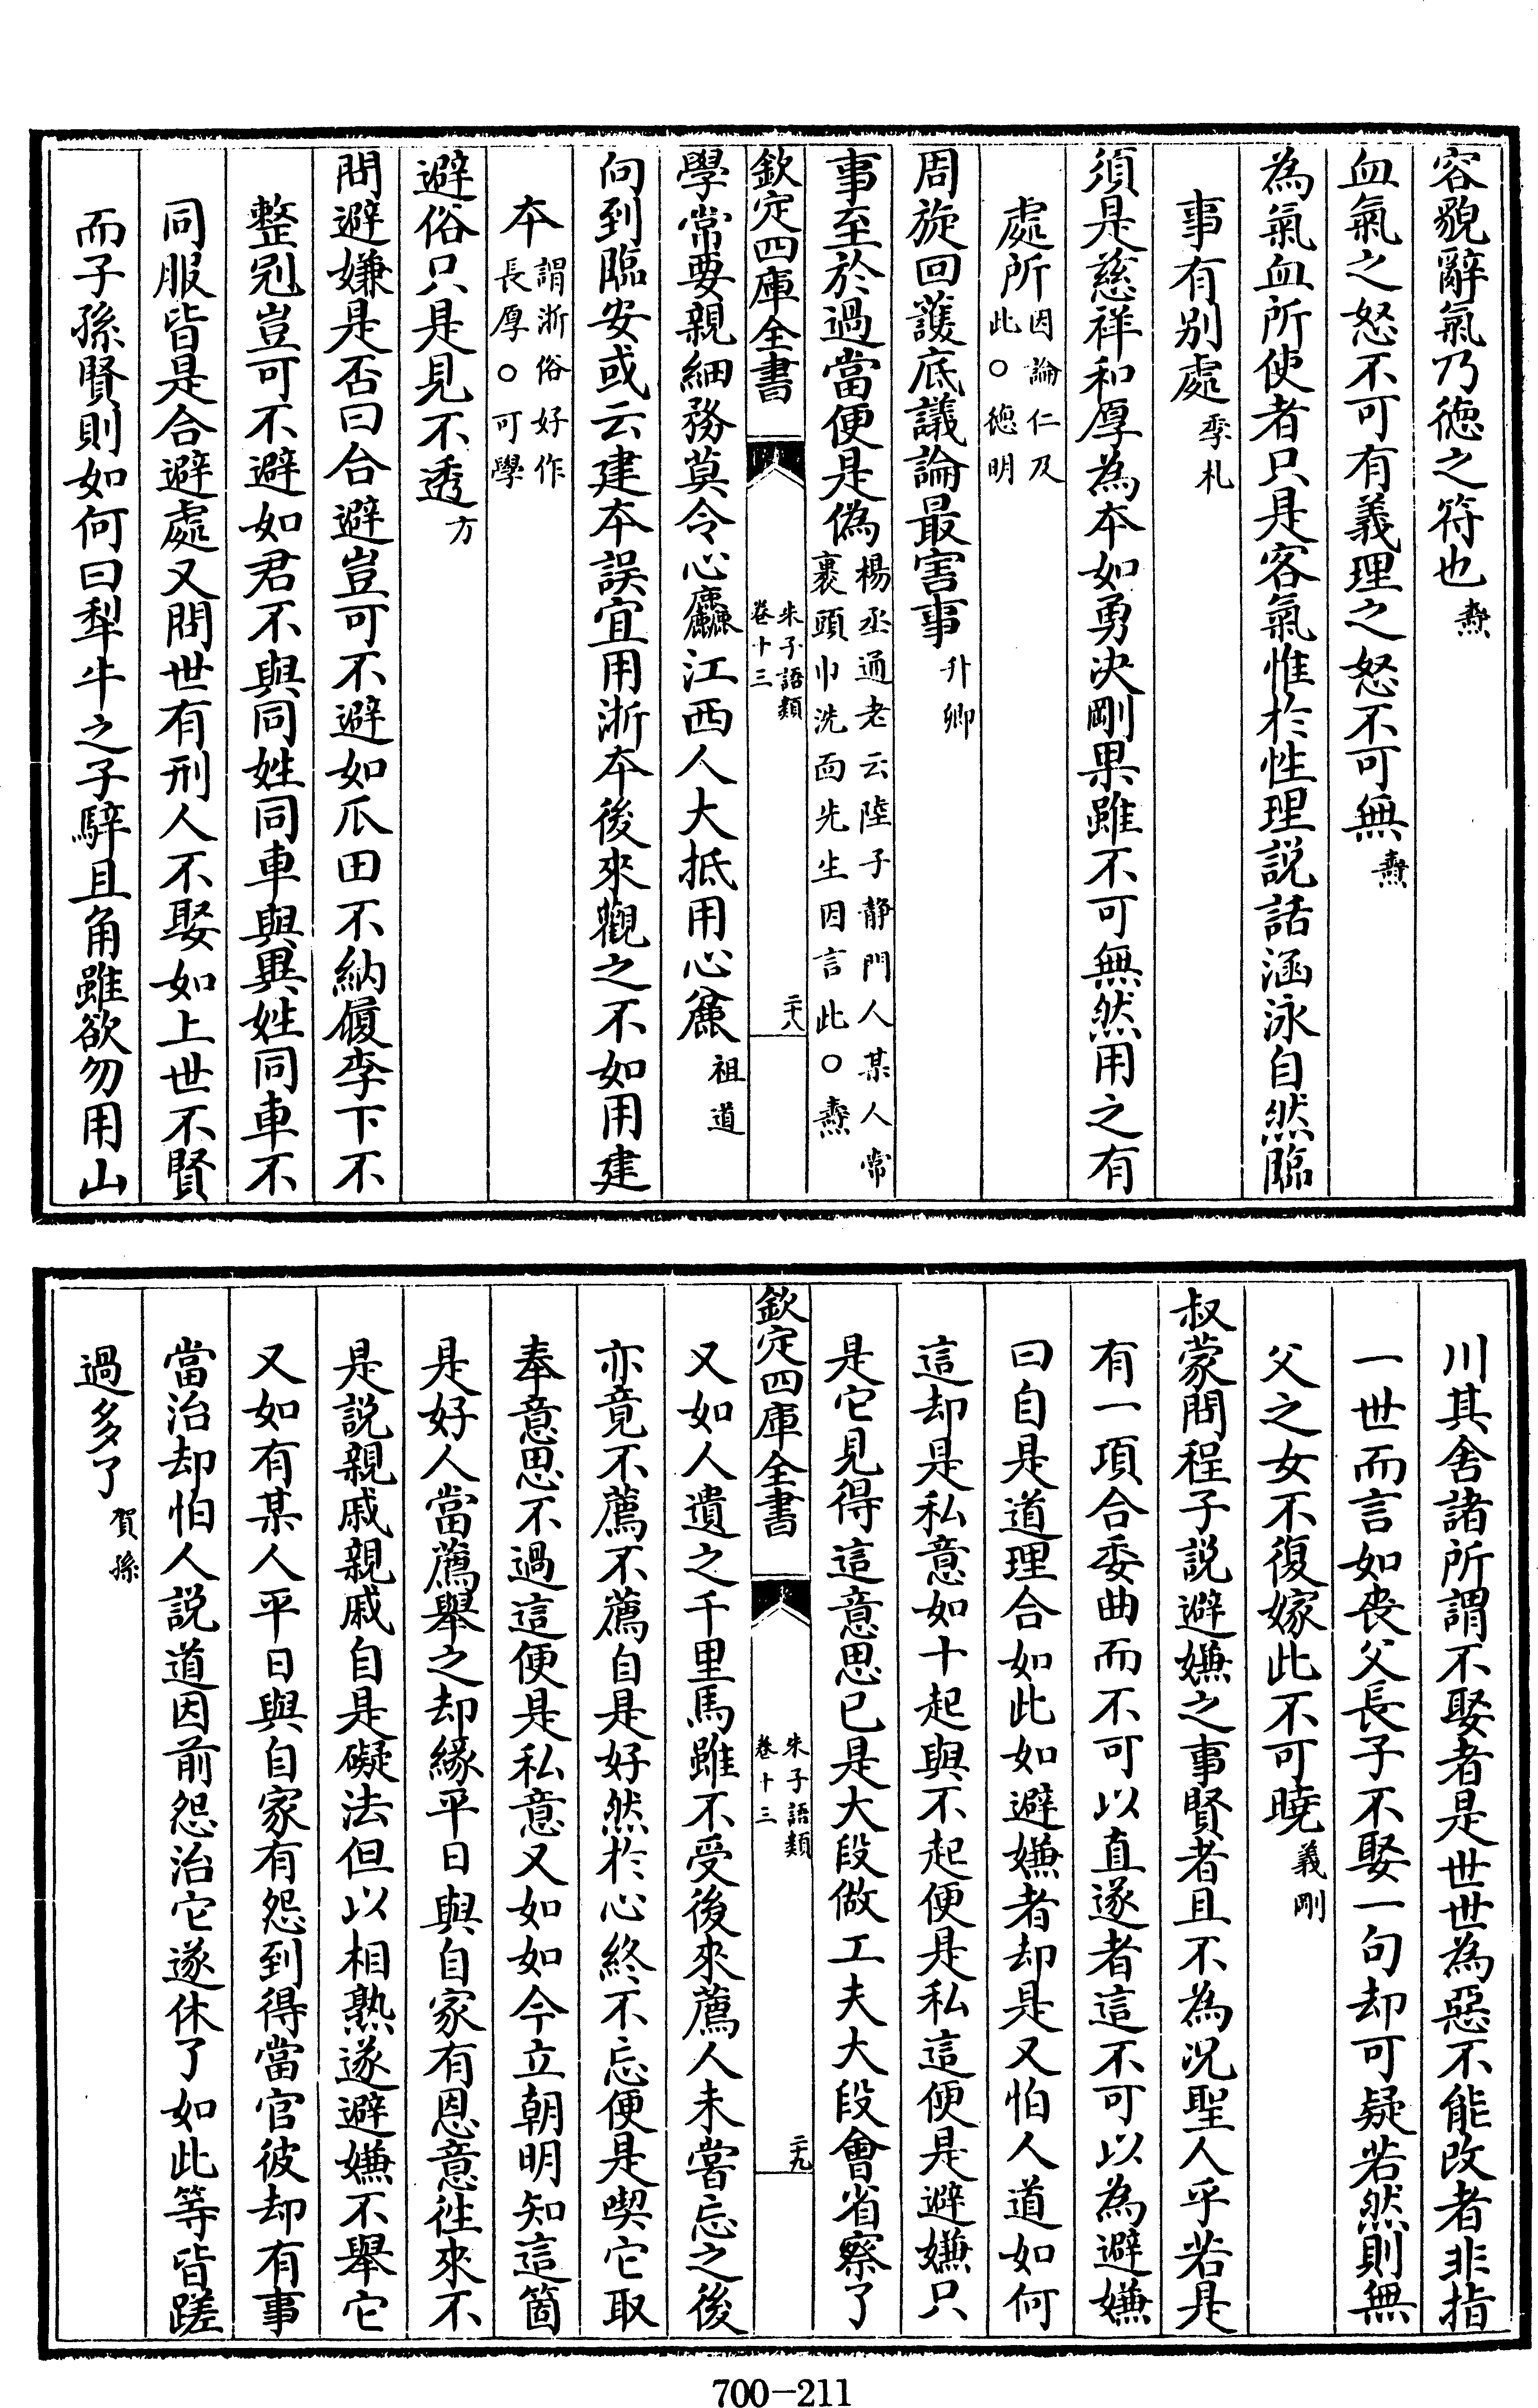 容貌辭氣乃德之符也 燾
血氣之怒不可有義理之怒不可無 燾
為氣血所使者只是客氣惟於性理説話涵泳自然臨
事有别處 季札
須是慈祥和厚為本如勇決剛果雖不可無然用之有
處所 因論仁及
此○德明
周旋回護底議論最害事 升卿
事至於過當便是偽 楊丞通老云陸子静門人某人常
裹頭巾洗面先生因言此○燾
欽定四庫全書
朱子語類
卷十三
二十八
學常要親細務莫令心麤江西人大抵用心麄 祖道
向到臨安或云建本誤宜用浙本後來觀之不如用建
本 謂浙俗好作
長厚○可學
避俗只是見不透 方
問避嫌是否曰合避豈可不避如瓜田不納履李下不
整冠豈可不避如君不與同姓同車與異姓同車不
同服皆是合避處又問世有刑人不娶如上世不賢
而子孫賢則如何曰犁牛之子騂且角雖欲勿用山
川其舍諸所謂不娶者是世世為惡不能改者非指
一世而言如喪父長子不娶一句却可疑若然則無
父之女不復嫁此不可曉 義剛
叔蒙問程子説避嫌之事賢者且不為況聖人乎若是
有一項合委曲而不可以直遂者這不可以為避嫌
曰自是道理合如此如避嫌者却是又怕人道如何
這却是私意如十起與不起便是私這便是避嫌只
是它見得這意思已是大段做工夫大段會省察了
欽定四庫全書
朱子語類
卷十三
二十九
又如人遺之千里馬雖不受後來薦人未嘗忘之後
亦竟不薦不薦自是好然於心終不忘便是喫它取
奉意思不過這便是私意又如如今立朝明知這箇
是好人當薦舉之却緣平日與自家有恩意往來不
是説親戚親戚自是礙法但以相熟遂避嫌不舉它
又如有某人平日與自家有怨到得當官彼却有事
當治却怕人説道因前怨治它遂休了如此等皆蹉
過多了 賀孫
700-211